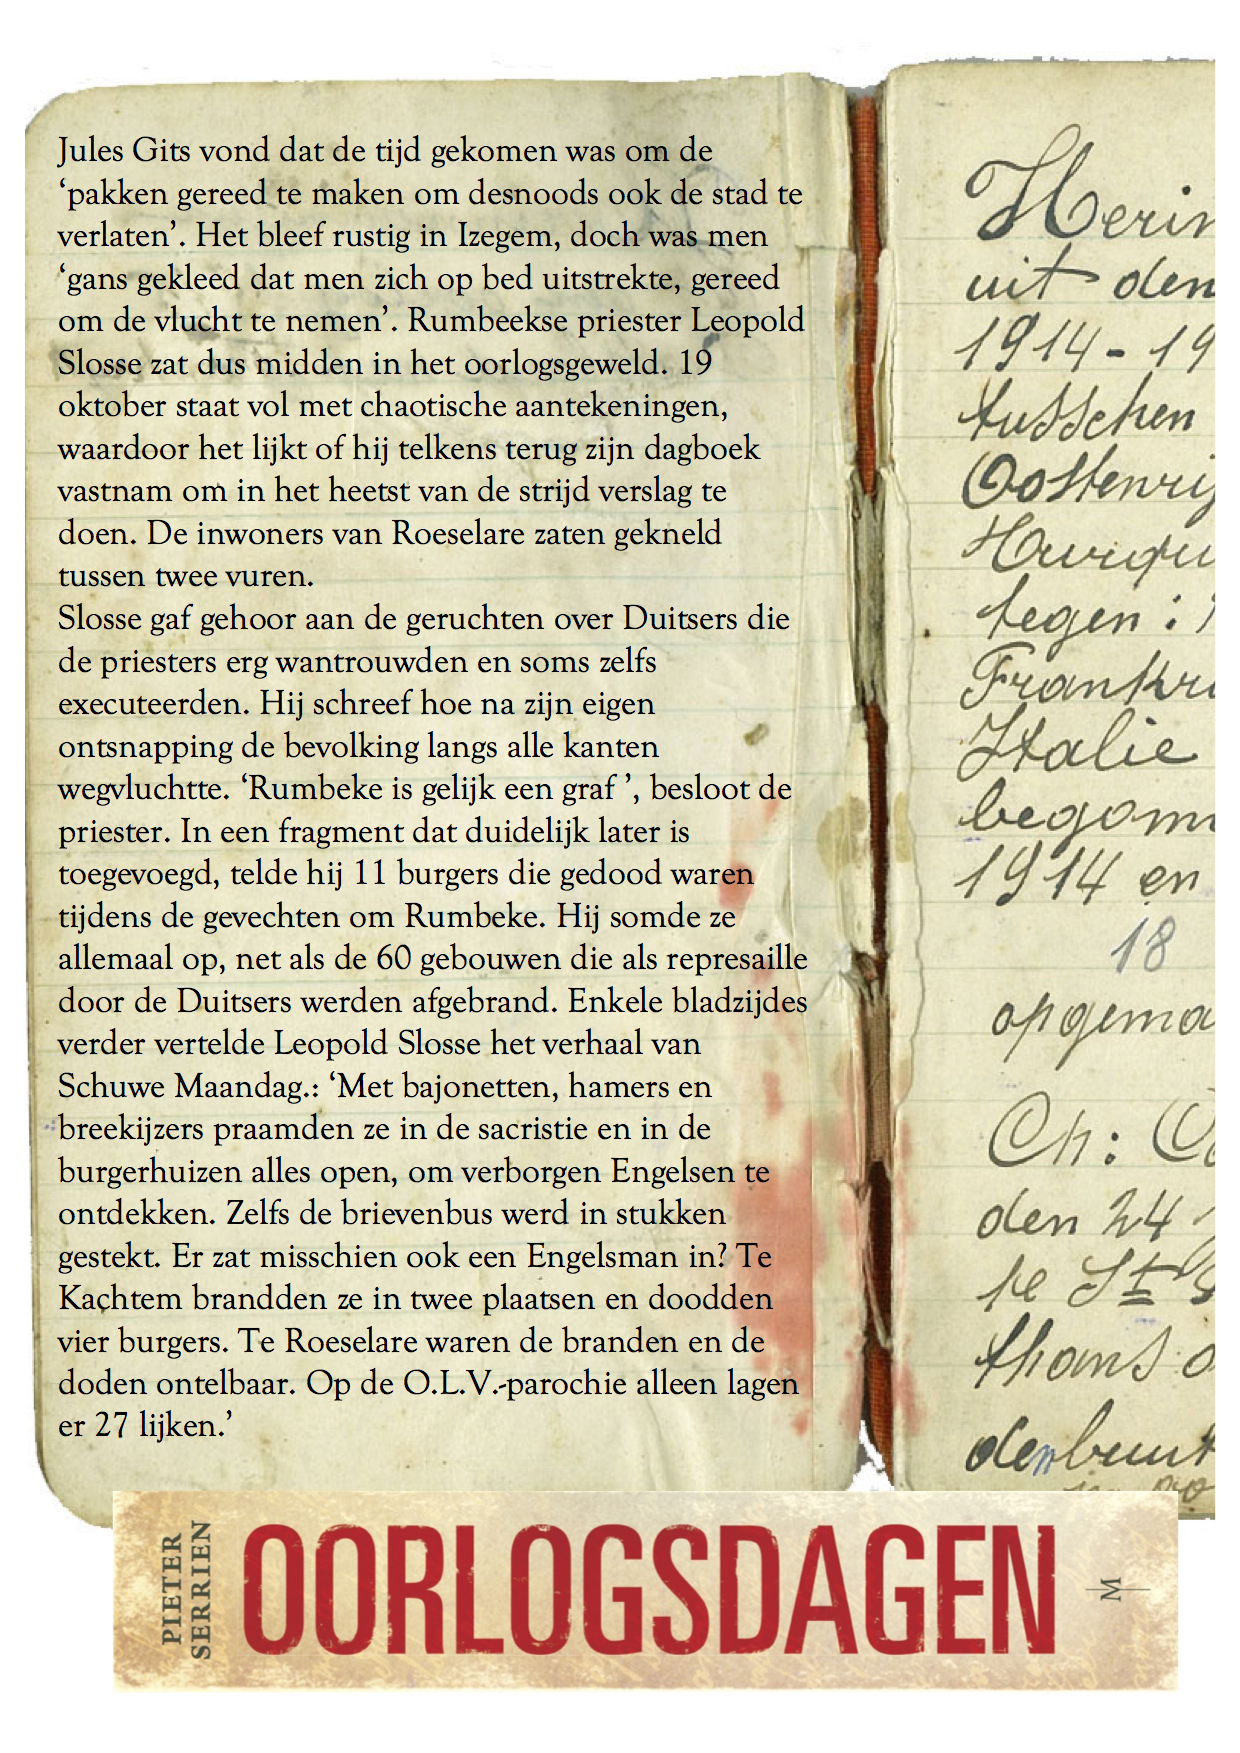 Jules Gits vond dat de tijd gekomen was om de
‘pakken gereed te maken om desnoods ook de stad te
verlaten’. Het bleef rustig in Izegem, doch was men
‘gans gekleed dat men zich op bed uitstrekte, gereed
om de vlucht te nemen’. Rumbeekse priester Leopold
Slosse zat dus midden in het oorlogsgeweld. 19
oktober staat vol met chaotische aantekeningen,
waardoor het lijkt of hij telkens terug zijn dagboek
vastnam om in het heetst van de strijd verslag te
doen. De inwoners van Roeselare zaten gekneld
tussen twee vuren.
Slosse gaf gehoor aan de geruchten over Duitsers die
de priesters erg wantrouwden en soms zelfs
executeerden. Hij schreef hoe na zijn eigen
ontsnapping de bevolking langs alle kanten
wegvluchtte. ‘Rumbeke is gelijk een graf ’, besloot de
priester. In een fragment dat duidelijk later is
toegevoegd, telde hij 11 burgers die gedood waren
tijdens de gevechten om Rumbeke. Hij somde ze
allemaal op, net als de 60 gebouwen die als represaille
door de Duitsers werden afgebrand. Enkele bladzijdes
verder vertelde Leopold Slosse het verhaal van
Schuwe Maandag.: ‘Met bajonetten, hamers en
breekijzers praamden ze in de sacristie en in de
burgerhuizen alles open, om verborgen Engelsen te
ontdekken. Zelfs de brievenbus werd in stukken
gestekt. Er zat misschien ook een Engelsman in? Te
Kachtem brandden ze in twee plaatsen en doodden
vier burgers. Te Roeselare waren de branden en de
doden ontelbaar. Op de O.L.V.-parochie alleen lagen
er 27 lijken.’
Herin
uit den
1914-19
tusschen
Oostenrij
tegen :
Frankri
Italie
begonn
1914 en
18
opgema
Ch:
den 24
te St
thans
PIETER
SERRIEN
OORLOGSDAGEN
M